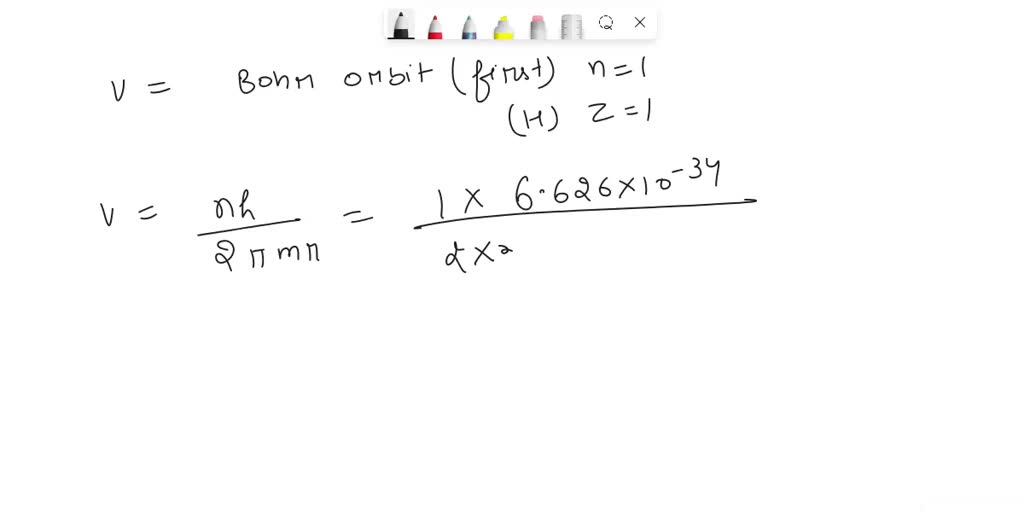 v = Bohr orbit (first) n=1
(H) Z=1
v = nh / 2πmr = 1 × 6.626×10^-34 / 2×2